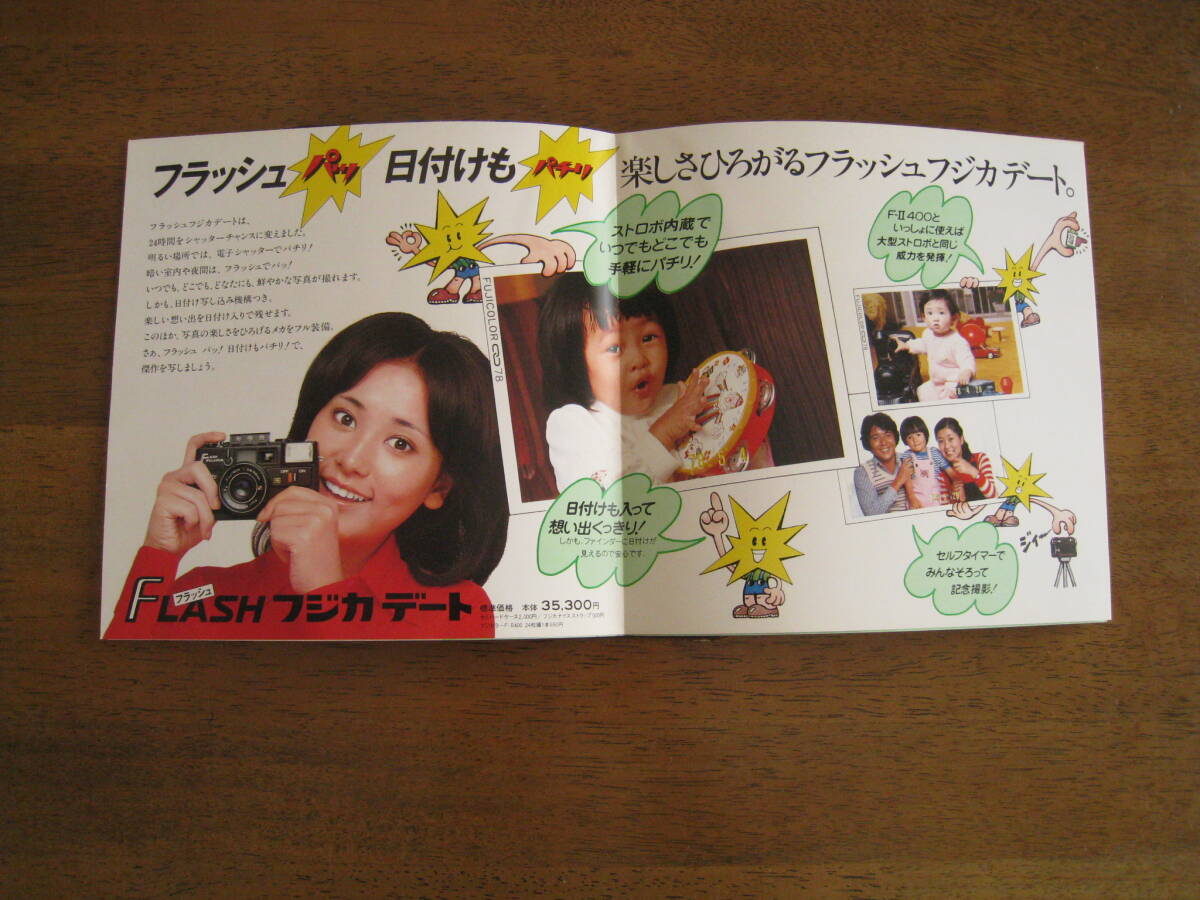 フラッシュ パッ 日付けも パチリ
フラッシュフジカデートは、
24時間をシャッターチャンスに変えました。
明るい場所では、電子シャッターでパチリ!
暗い室内や夜間は、フラッシュでパッ!
いつでも、どこでも、どなたにも、鮮やかな写真が撮れます。
しかも、日付け写し込み機構つき。
楽しい想い出を日付け入りで残せます。
このほか、写真の楽しさをひろげるメカをフル装備。
さあ、フラッシュ パッ! 日付けもパチリ!で、
傑作を写しましょう。
FLASH
FUJICA
OFF ON
フラッシュ
FLASH フジカ デート
標準価格 本体 35,300円
セミハードケース2,000円/フジカナイスストラップ500円
フジカラーF-II400 24枚撮り
楽しさひろがるフラッシュフジカデート。
ストロボ内蔵で
いつでもどこでも
手軽にパチリ!
FUJICOLOR 78
78 5 4
日付けも入って
想い出くっきり!
しかも、ファインダーに日付けが
見えるので安心です。
F-II 400と
いっしょに使えば
大型ストロボと同じ
威力を発揮!
FUJICOLOR 78
セルフタイマーで
みんなそろって
記念撮影!
ジィー